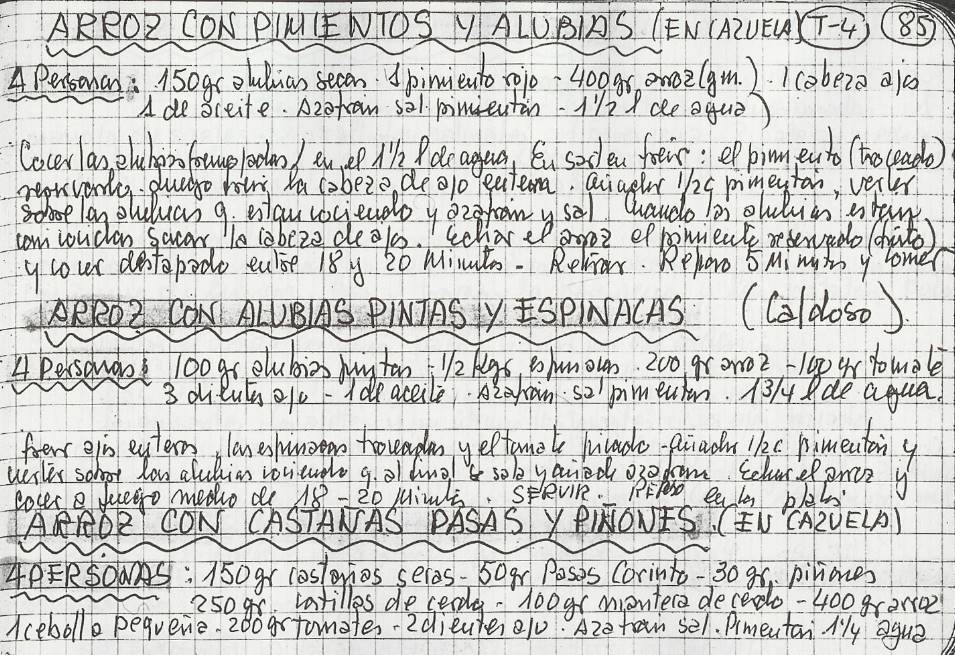 ARROZ CON PIMIENTOS Y ALUBIAS (EN CAZUELA) T-4 85
4 Personas: 150gr alubias secas - 1 pimiento rojo - 400gr arroz (gm.) - 1 cabeza ajos
1 dl aceite. Azafran sal. pimenton - 1 1/2 l de agua)
Cocer las alubias (remojadas) en el 1 1/2 l de agua. En sarten freir: el pimiento (troceado)
reservarlo. Luego freir la cabeza de ajo entera. Añadir 1/2 c pimenton, verter
sobre las alubias q. estan cociendo y azafran y sal. Cuando las alubias esten
cocidas sacar la cabeza de ajos. Echar el arroz el pimiento reservado (frito)
y cocer destapado entre 18 y 20 Minutos - Retirar. Reposo 5 Minutos y comer
ARROZ CON ALUBIAS PINTAS Y ESPINACAS (Caldoso)
4 Personas: 100 gr alubias pintas - 1/2 Kgr espinacas. 200 gr arroz - 100 gr tomate
3 dientes ajo - 1 dl aceite. Azafran. sal pimenton. 1 3/4 l de agua.
freir ajos enteros, las espinacas troceadas y el tomate picado - añadir 1/2 c. pimenton y
verter sobre las alubias cociendo q. al final se sala y añade azafran. Echar el arroz y
cocer a fuego medio de 18 - 20 Minutos. SERVIR. Reposo en los platos
ARROZ CON CASTAÑAS PASAS Y PIÑONES. (EN CAZUELA)
4 PERSONAS: 150gr castañas secas - 50gr Pasas Corinto - 30 gr. piñones
250 gr. costillas de cerdo - 100gr manteca de cerdo - 400 gr arroz
1 cebolla pequeña - 200 gr tomates - 2 dientes ajo. Azafran sal. Pimenton 1 1/4 agua